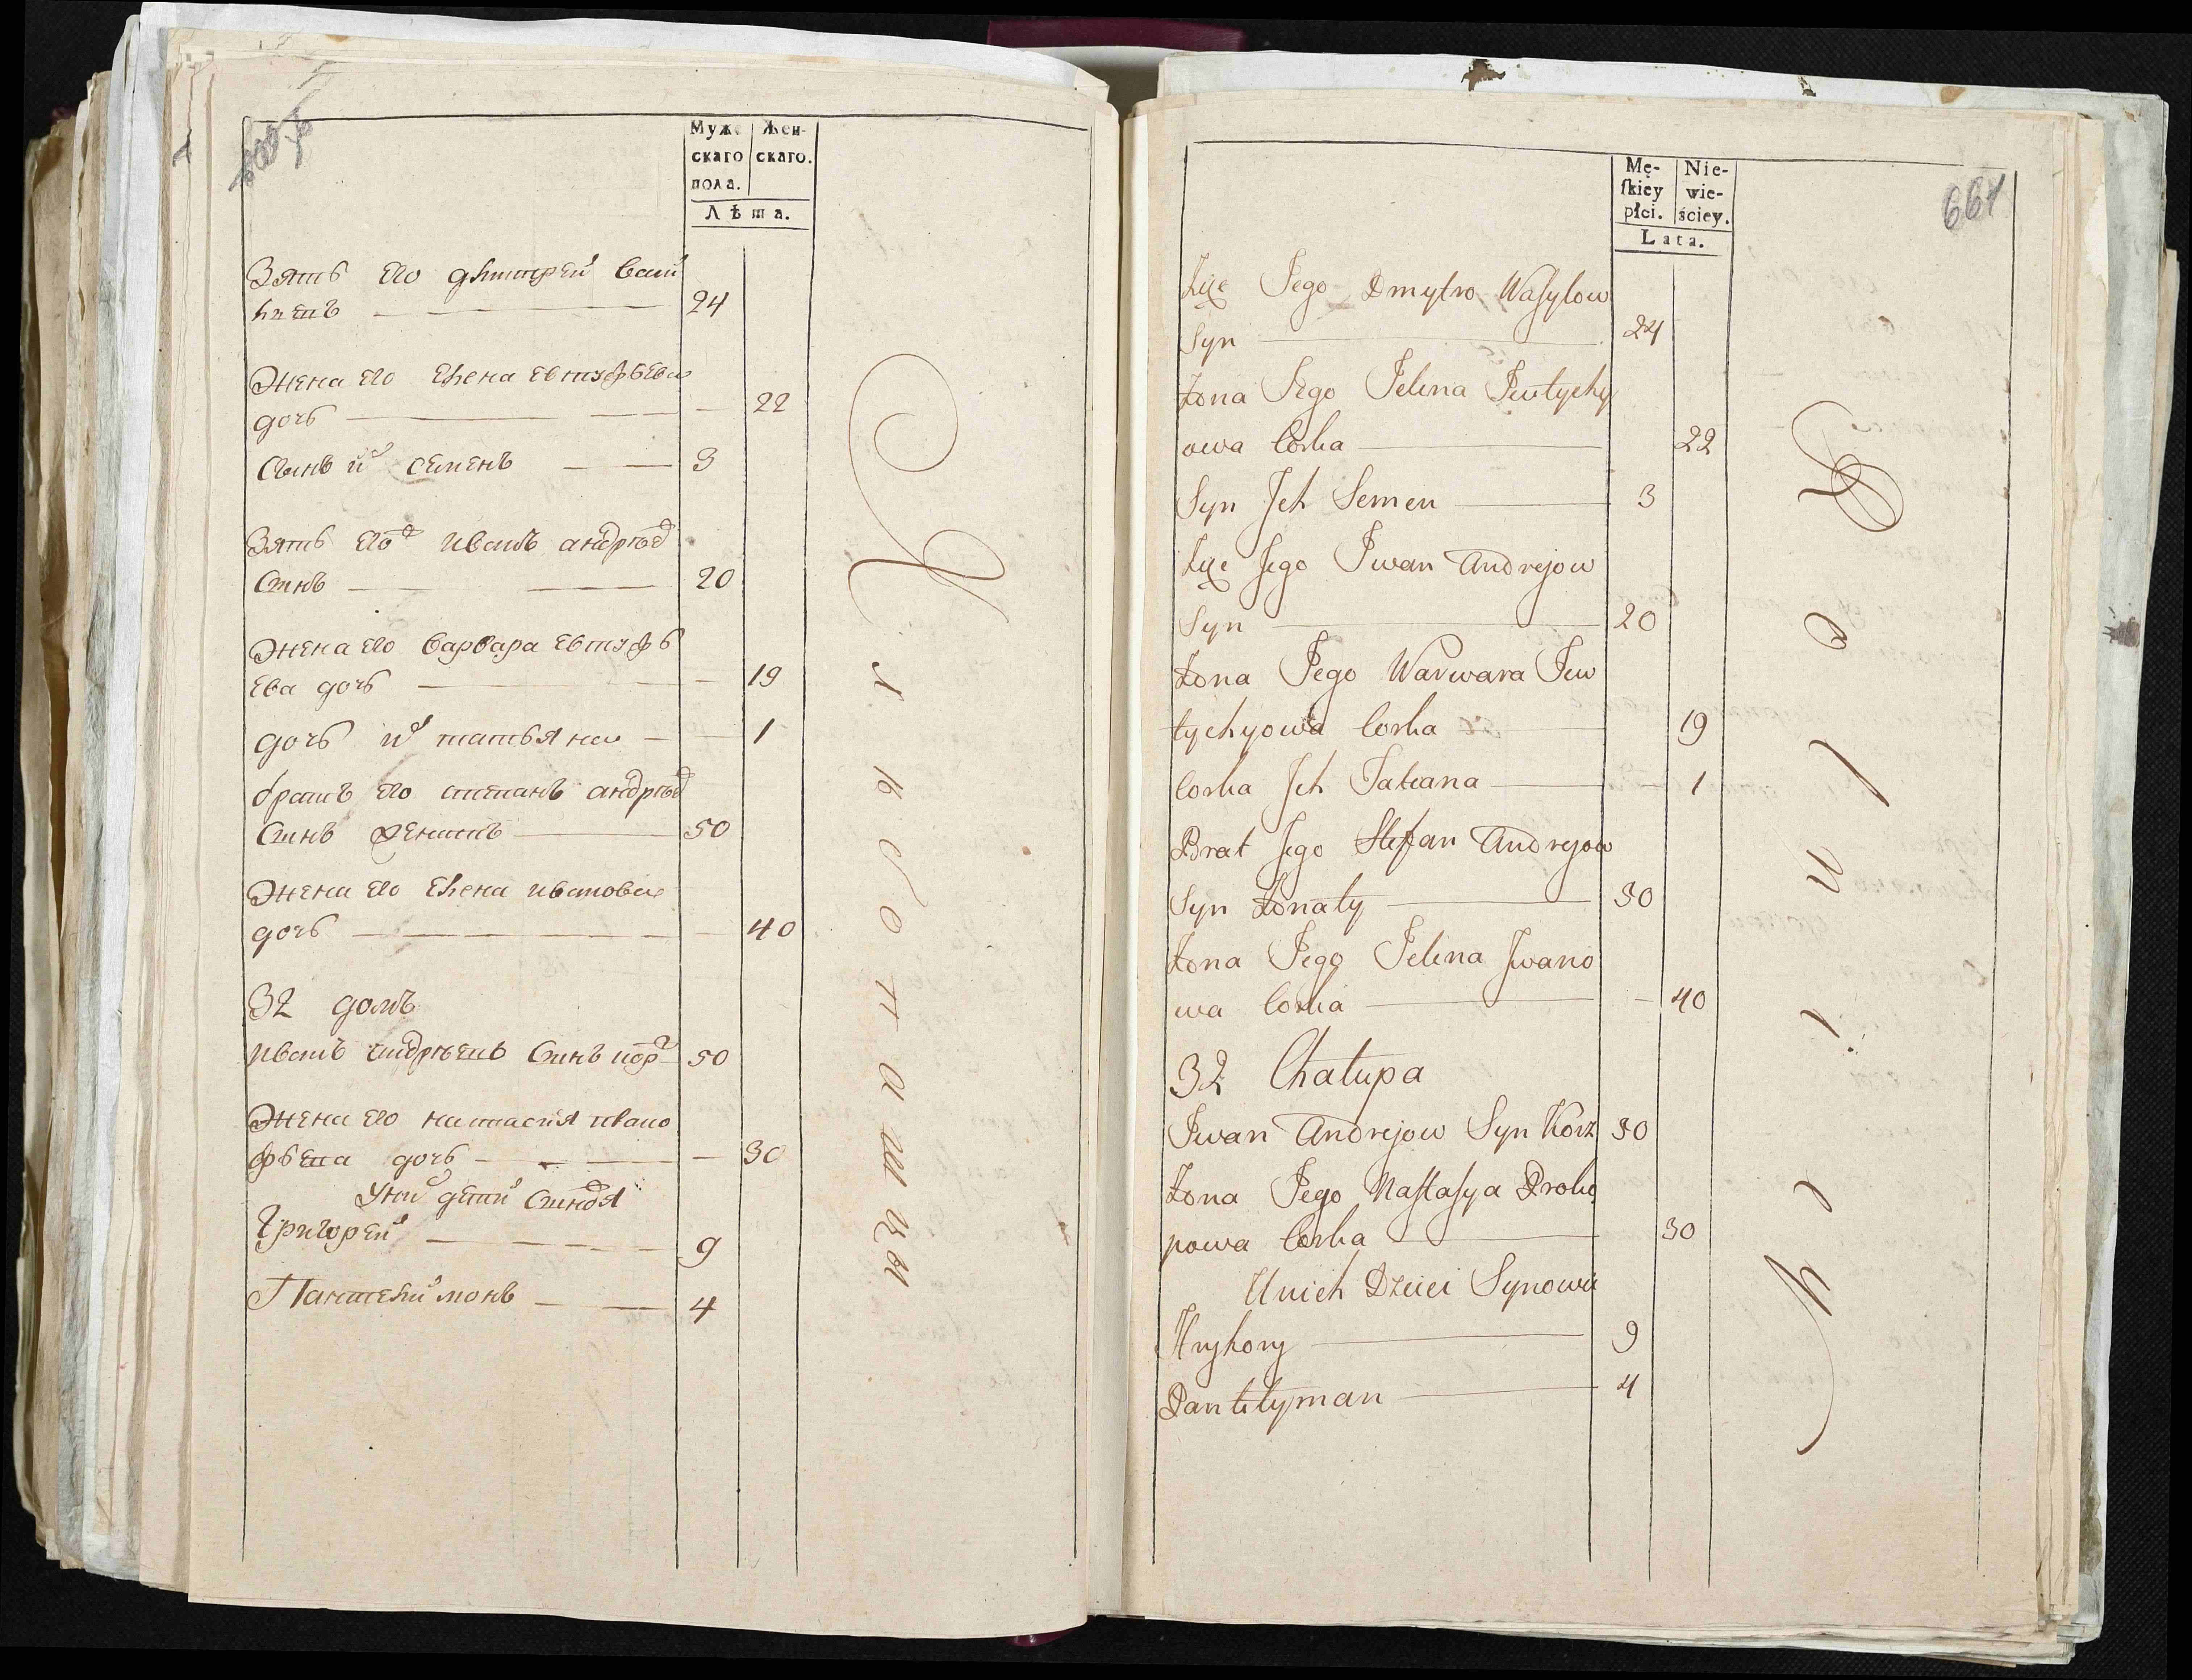 Муже
скаго
пола.
Жен-
скаго.
Лѣта.
Зять его дмитрей васи
лиевъ 24
Жена его елена евтуфьева
дочь 22
Сынъ их семенъ 3
Зять его иванъ андреев
Синъ 20
Жена его варвара евтуфь
ева дочь 19
дочь их татьяна 1
братъ его степанъ андреев
Синъ 50
Жена его елена иванова
дочь 40
32 домъ
иванъ андреевъ Синъ 50
Жена его настасия
дочь 30
У них дети Синовя
Григорей 9
Пантелиймонъ 4
661
Mę-
ſkiey
płci.
Nie-
wie-
ściey.
Lata.
Zięć Jego Dmytro Waſylow
Syn 24
Żona Jego Jelena Jewtychy
owa Corka 22
Syn Jch Semen 3
Zięć Jego Jwan Andrejow
Syn 20
Żona Jego Warwara Jew
tychyowa Corka 19
Corka Jch Tatiana 1
Brat Jego Stefan Andrejow
Syn Żonaty 50
Żona Jego Jelena Jwano
wa Corka 40
32 Chałupa
Jwan Andrejow Syn Korz 50
Żona Jego Naſtaſya Proko
powa Corka 30
Unich Dzieci Synowie
Hryhory 9
Pantelyman 4